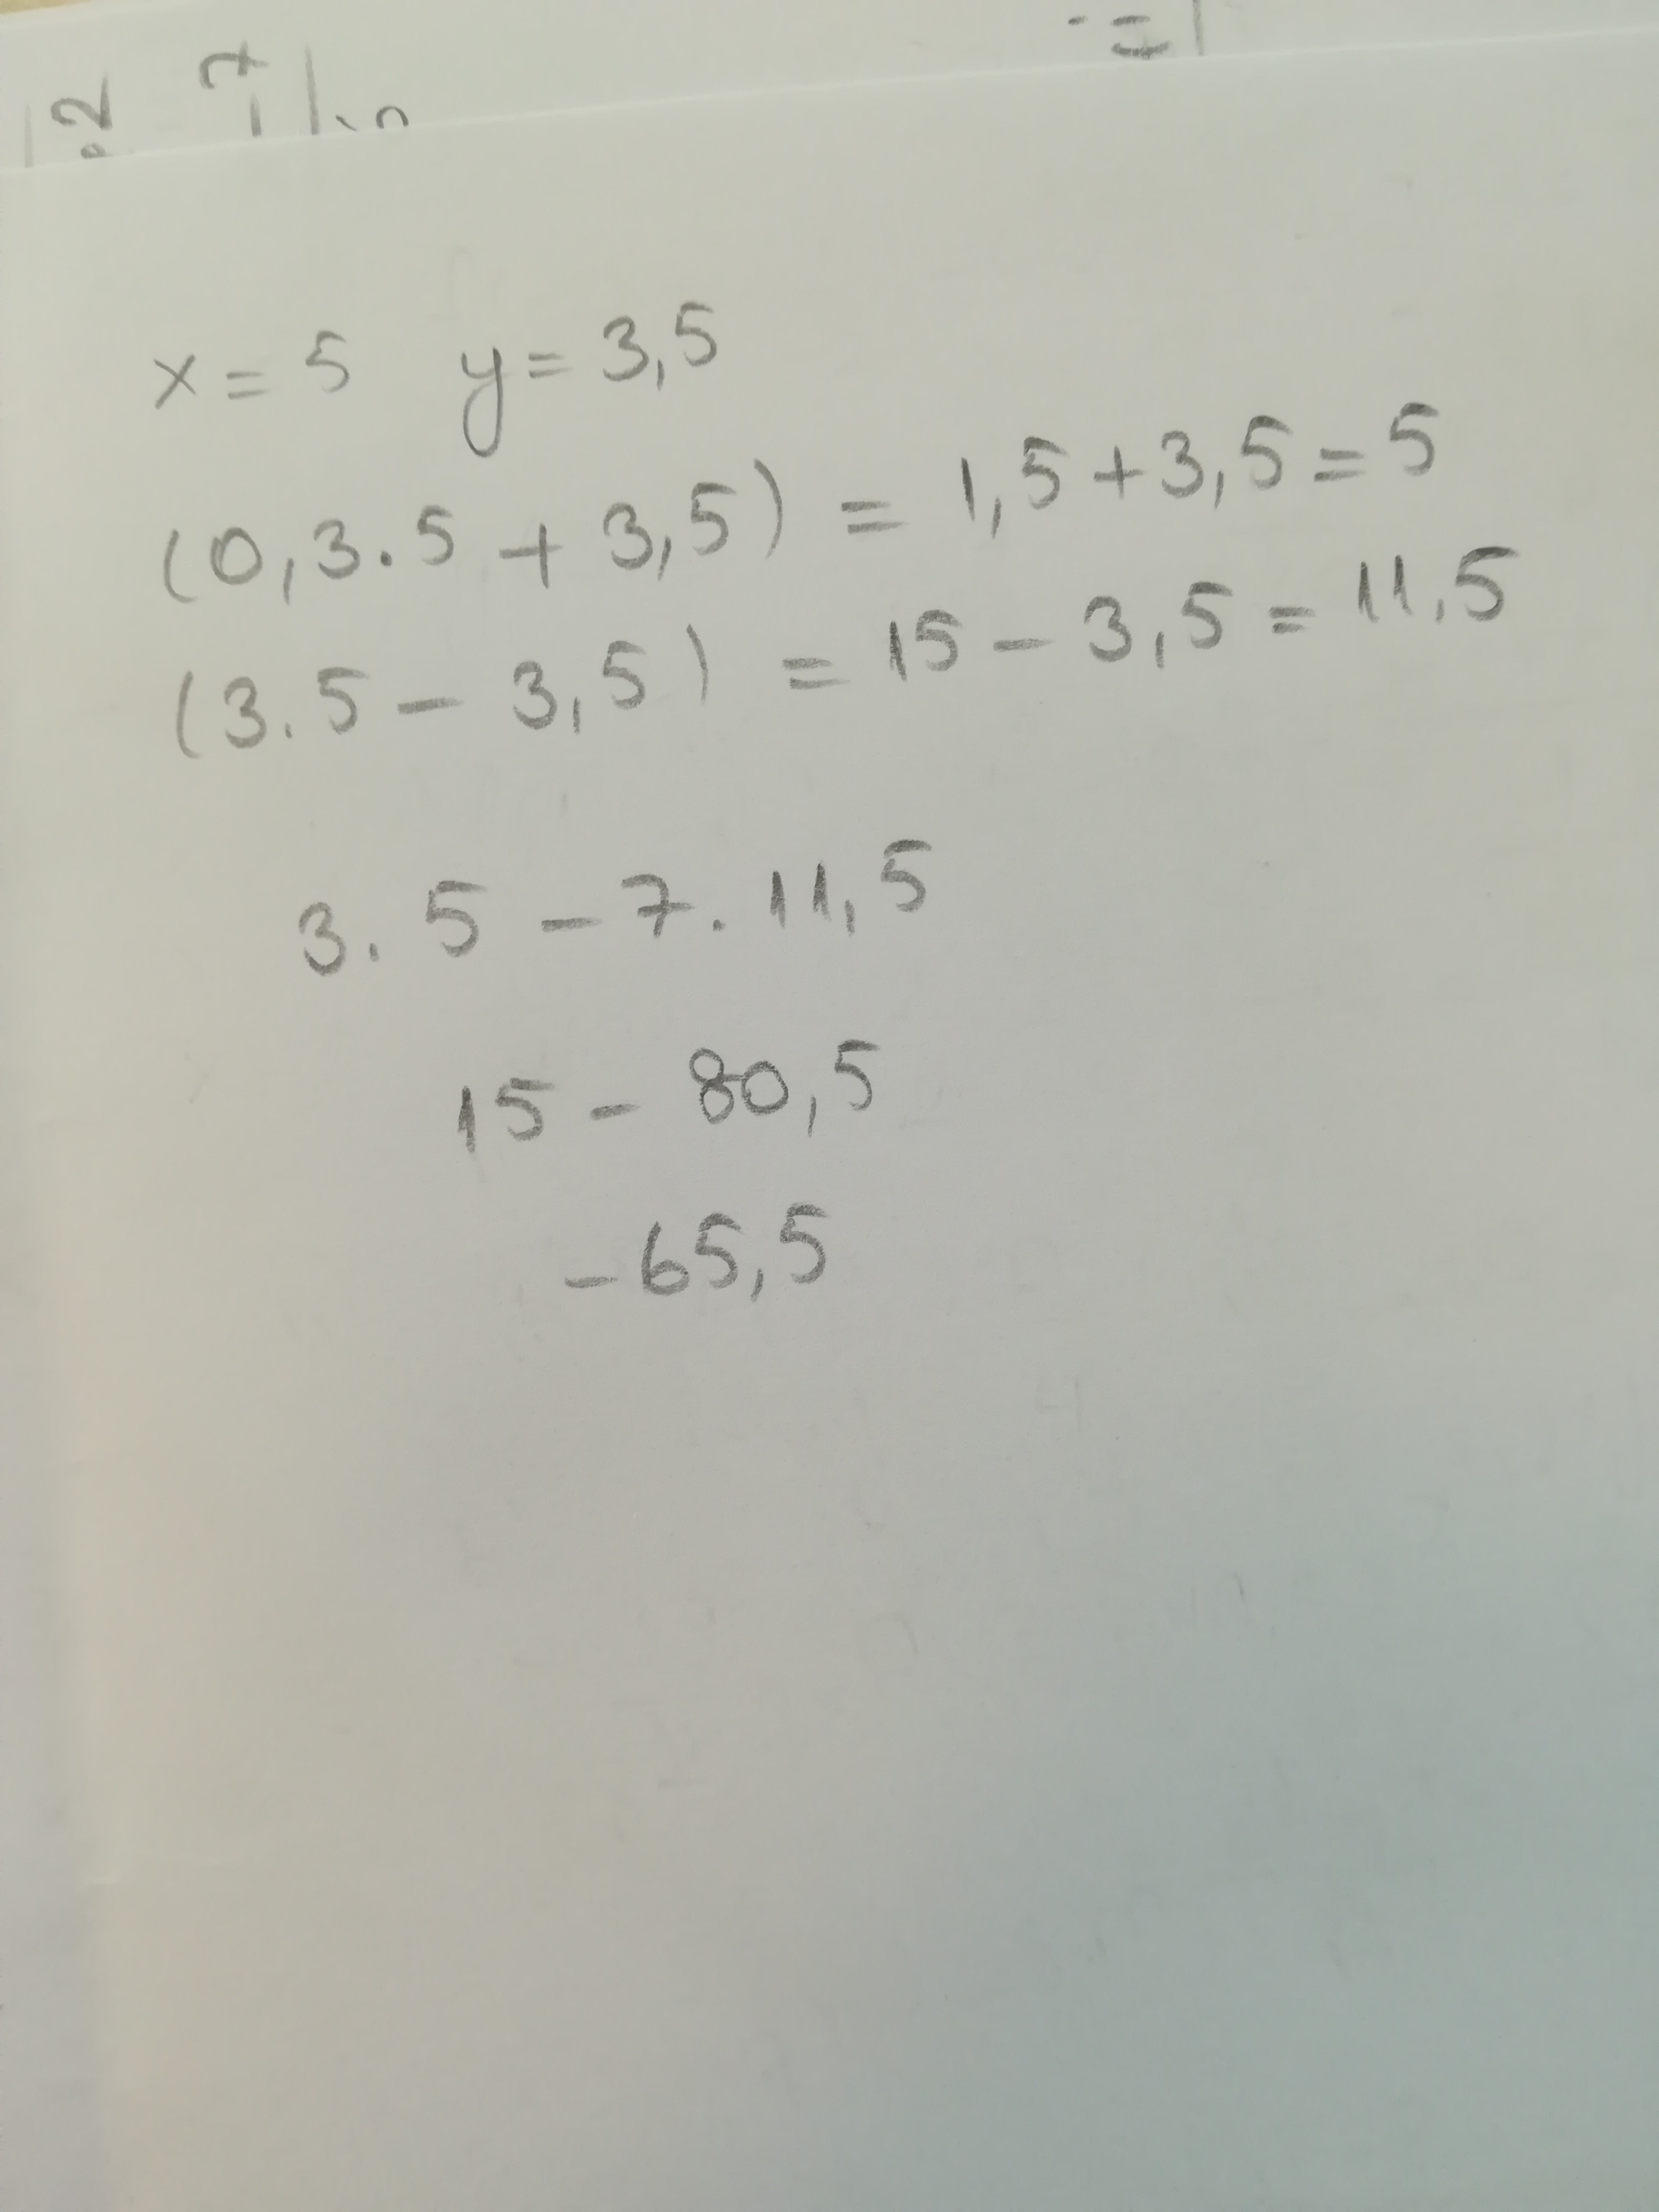 x = 5 y = 3,5
(0,3 . 5 + 3,5) = 1,5 + 3,5 = 5
(3 . 5 - 3,5) = 15 - 3,5 = 11,5
3 . 5 - 7 . 11,5
15 - 80,5
- 65,5